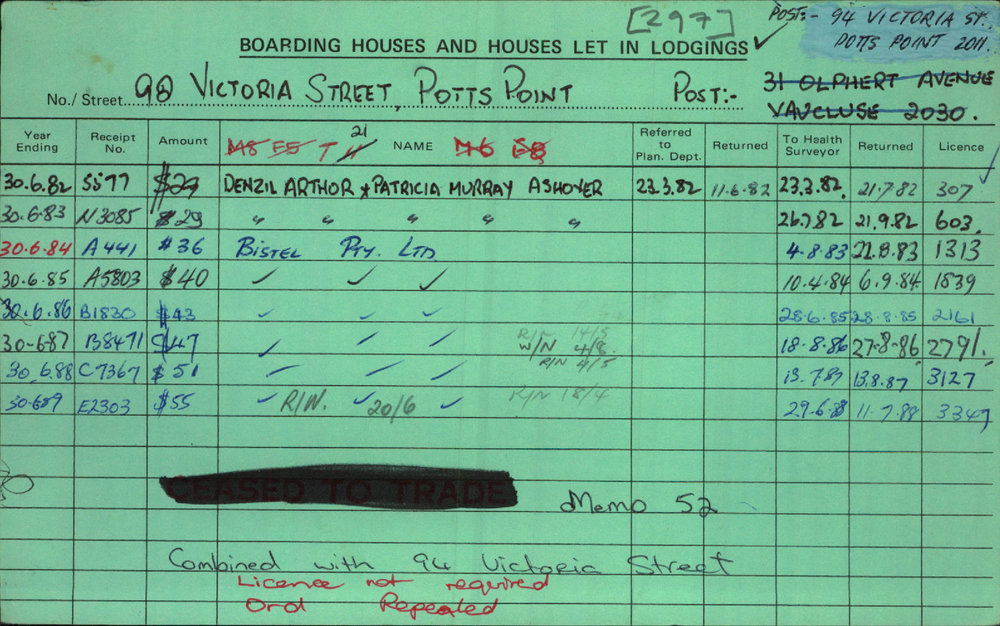 [297]
POST:- 94 VICTORIA ST.
POTTS POINT 2011.
BOARDING HOUSES AND HOUSES LET IN LODGINGS
No./Street 98 VICTORIA STREET, POTTS POINT POST:- 31 OLPHERT AVENUE
VAUCLUSE 2030.
Year Ending Receipt No. Amount M8 E5 T 21 NAME M6 E8 Referred to Plan. Dept. Returned To Health Surveyor Returned Licence
30.6.82 5577 $29 DENZIL ARTHOR & PATRICIA MURRAY ASHOVER 23.3.82 11.6.82 23.3.82. 21.7.82 307
30.6.83 N3085 $29 " " " " " 26.7.82 21.9.82 603.
30.6.84 A441 $36 BISTEL PTY. LTD 4.8.83 22.8.83 1313
30.6.85 A5803 $40 ✓ ✓ ✓ 10.4.84 6.9.84 1839
30.6.86 B1830 $43 ✓ ✓ ✓ 28.6.85 28.8.85 2161
30-6.87 B8471 $47 ✓ ✓ ✓ R/N 14/5 W/N 4/8. R/N 4/5 18.8.86 27.8.86 2791.
30.6.88 C7367 $51 ✓ ✓ ✓ 13.7.87 13.8.87 3127
30.6.89 E2303 $55 ✓ R/W. ✓ 20/6 ✓ R/N 18/4 29.6.88 11.7.88 3347
CEASED TO TRADE
Memo 52
Combined with 94 Victoria Street
Licence not required
Ord Repealed